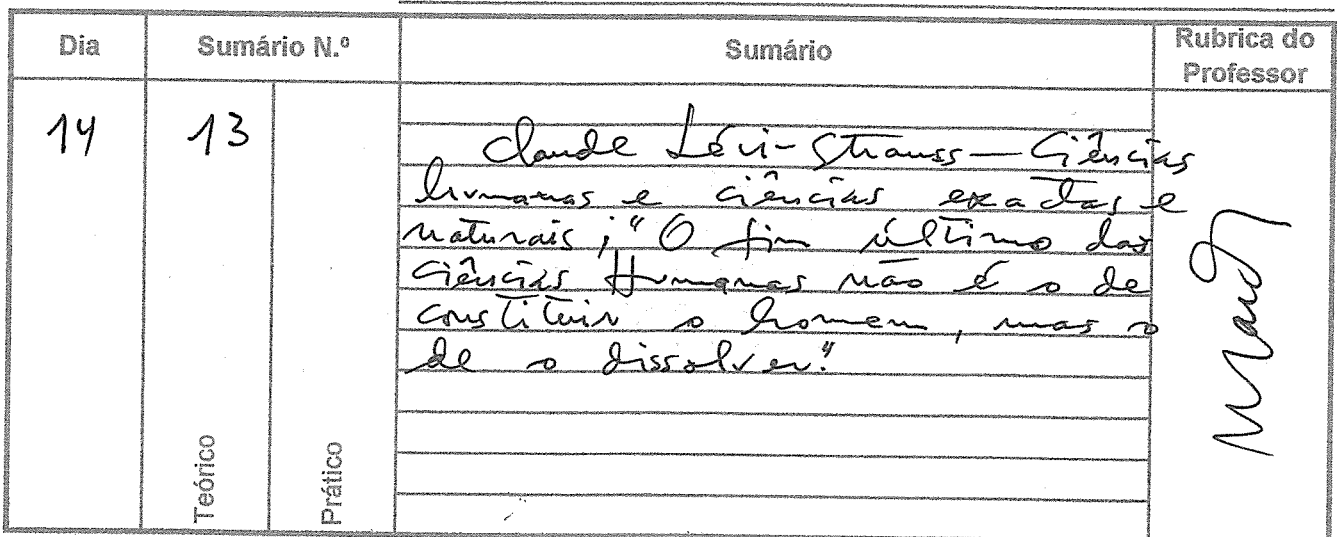 Dia
Sumário N.º
Sumário
Rubrica do
Professor
14
13
Claude Lévi-Strauss — Ciências
humanas e ciências exactas e
naturais; "O fim último das
Ciências Humanas não é o de
constituir o homem, mas o
de o dissolver."
Teórico
Prático